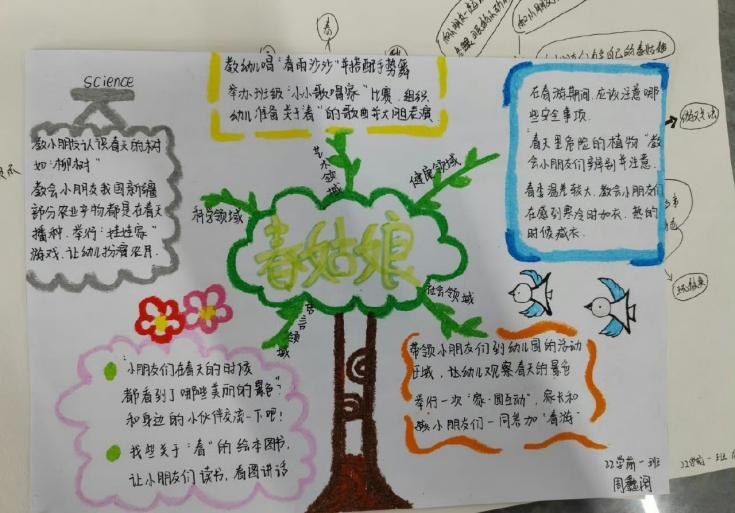 science
教小朋友认识春天的树
如"柳树"
教会小朋友我国新疆
部分农业产物都是在春天
播种.举行"娃娃家"
游戏.让幼儿扮演农民.
教幼儿唱"春雨沙沙"并搭配手势舞
举办班级"小小歌唱家"比赛.组织
幼儿准备关于"春"的歌曲并大胆表演
在春游期间,应该注意哪
些安全事项.
"春天里危险的植物"教
会小朋友们辨别并注意.
春季温差较大,教会小朋友们
在感到寒冷时加衣.热的
时候减衣.
艺术领域
健康领域
科学领域
春姑娘
社会领域
语言领域
"小朋友们在春天的时候
都看到了哪些美丽的景色"
和身边的小伙伴交流一下吧!
找些关于"春"的绘本图书,
让小朋友们读书,看图讲话
带领小朋友们到幼儿园的活动
区域,让幼儿观察春天的景色
举行一次"家·园互动",家长和
小朋友们一同参加"春游"
22学前一班